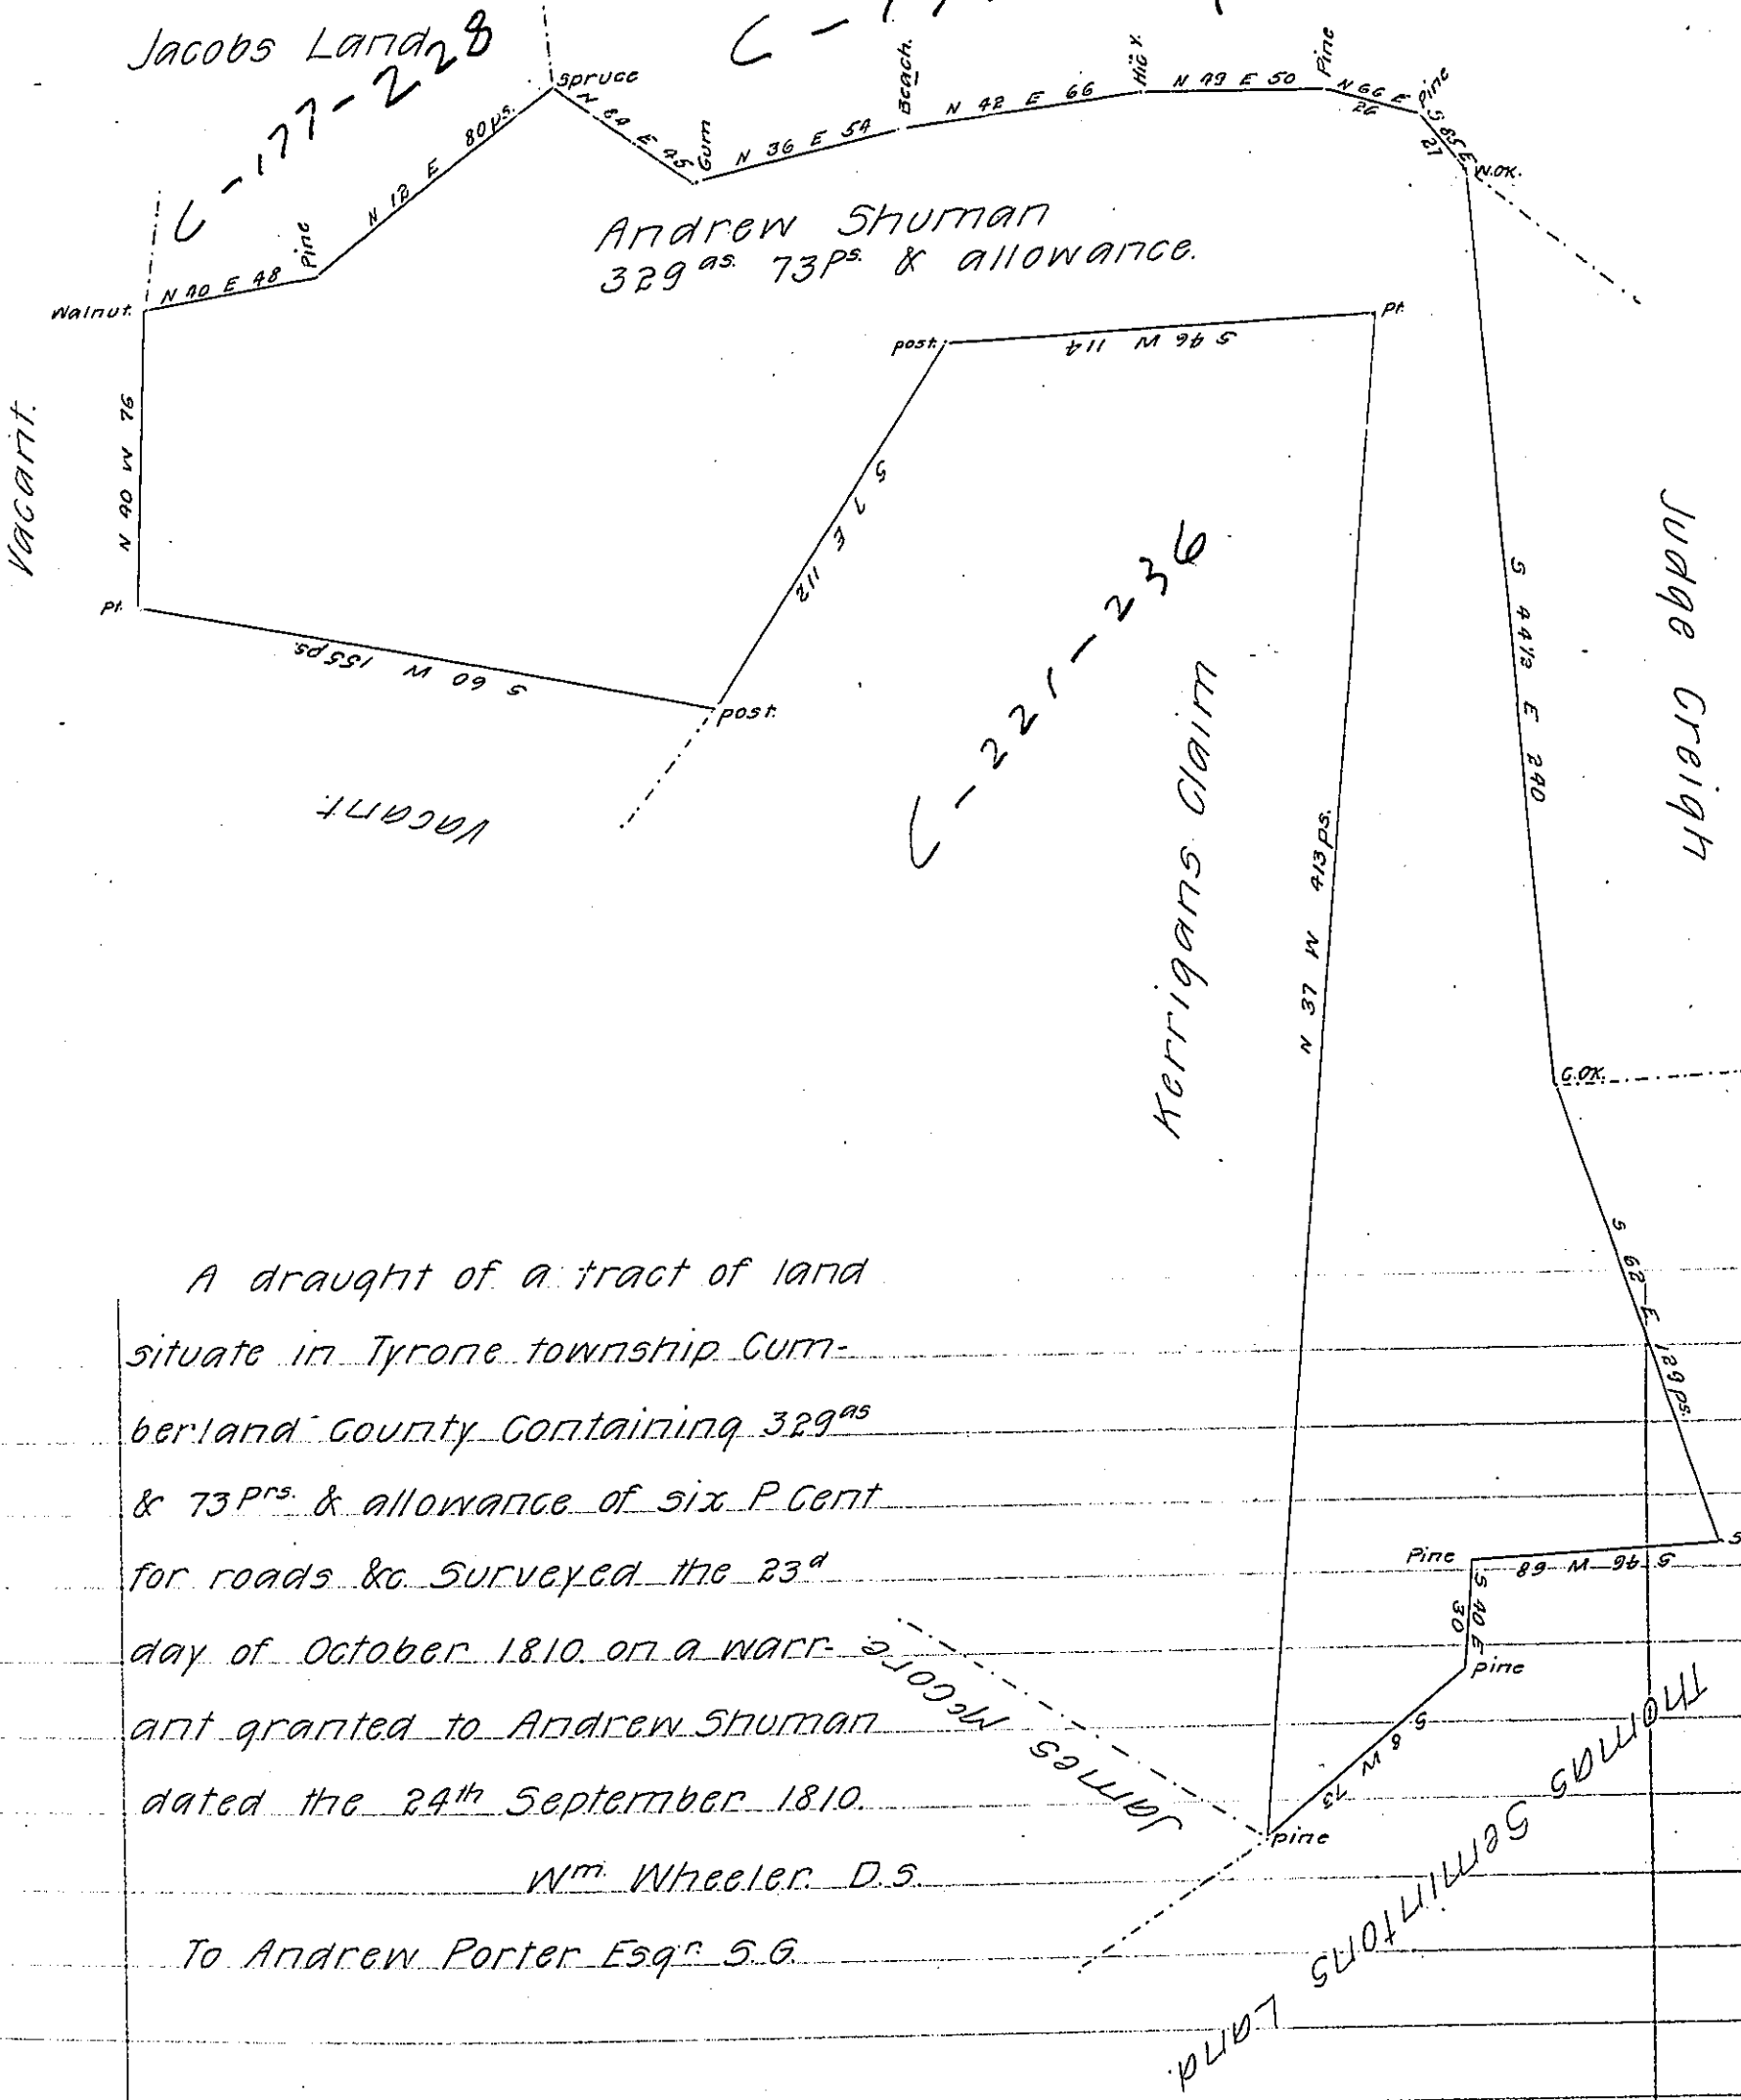 Jacobs Land
C-177-228
Spruce
N 12 E 80 ps.
N 64 E 45
Gum
N 36 E 54
Beach.
N 42 E 66
Hic y.
N 49 E 50
Pine
N 66 E 26
Pine
S 85 E 27
W.OK.
Andrew Shuman
329 as. 73 Ps. & allowance.
Pine
N 40 E 48
Walnut.
Vacant.
N 40 W 76
Pt.
S 60 W 155 ps.
post.
Vacant.
S 7 E 112
post.
S 46 W 114
Pt.
C-221-236
Kerrigans Claim
N 37 W 413 ps.
S 44 1/2 E 240
Judge Creigh
C.OK.
S 62 E 129 ps.
S 46 W 68
Pine
S 40 E 30
pine
S 8 W 73
pine
James McCore
Thomas Semintons Land.
A draught of a tract of land
situate in Tyrone township Cum-
berland County Containing 329 as
& 73 Prs. & allowance of six P Cent
for roads &c. Surveyed the 23d
day of October 1810. on a warr-
ant granted to Andrew Shuman
dated the 24th September 1810.
Wm. Wheeler. D.S.
To Andrew Porter Esqr. S.G.